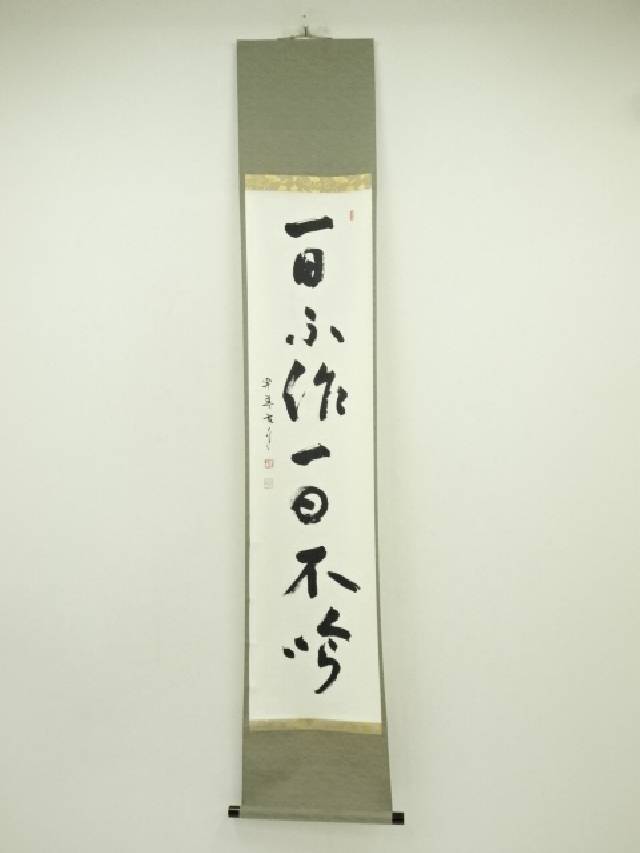 一日不作一日不吟